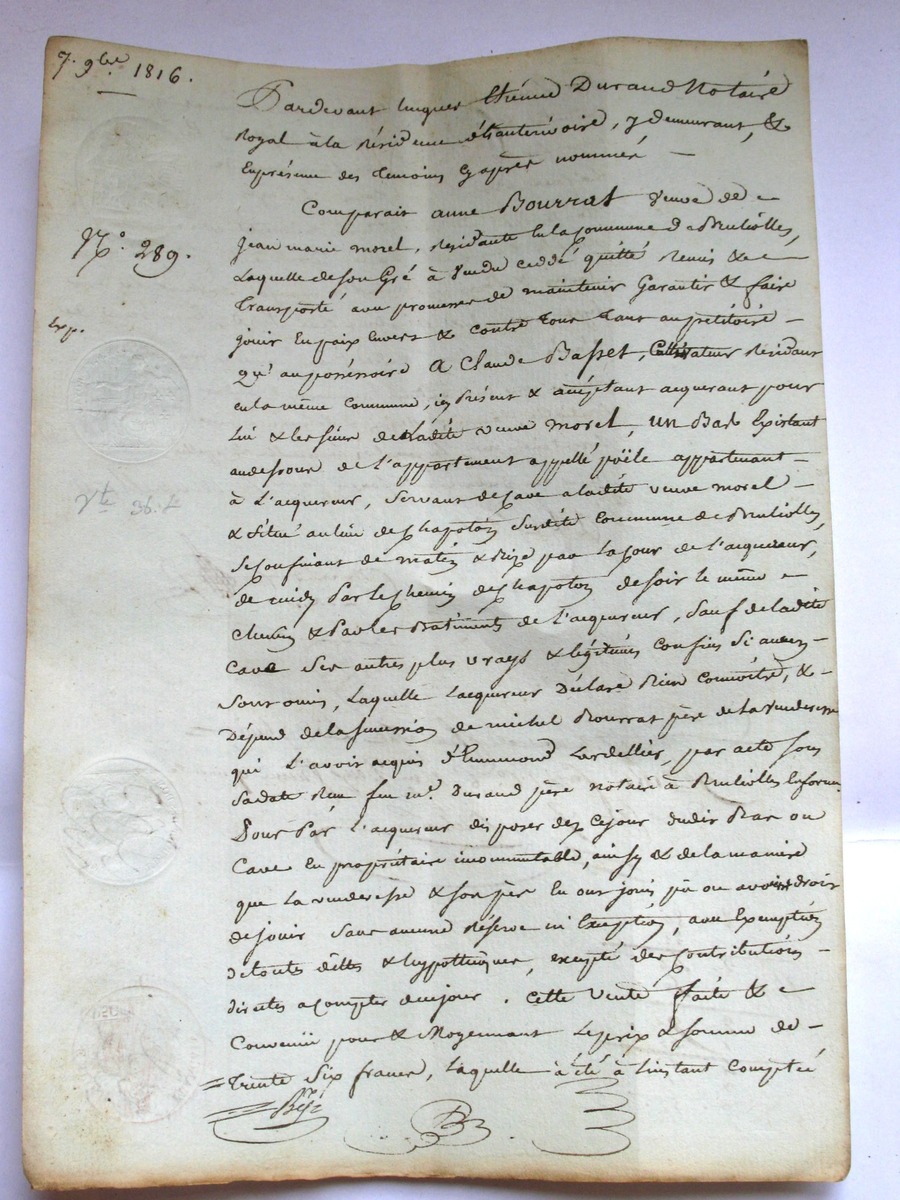 7. 9bre 1816.
Pardevant Jacques Etienne Durand Notaire
Royal à la Résidence , y demeurant, &
En présence des temoins cy après nommés —
N.° 289.
Comparait anne Bourrat veuve de
jean marie morel, Résidante en la Commune de Brulioles,
Laquelle de son Gré à Vendu ceddé quitté Remis & —
exp.
Transporté avec promesse de maintenir Garantir & faire
jouir En paix Envers & contre tous tant au pétitoire —
qu'au possessoire A Claude Basset, Cultivateur Résidant
en la même Commune, icy Présent & acceptant acquerant pour
Lui & les siens de Ladite veuve morel, un Bas Existant
au dessous de L'appartement appellé poële appartenant —
à L'acquereur, Servant de Cave a ladite veuve morel —
Vte 36.f
& Situé au lieu de Chapoton Susdite Commune de Brulioles,
Se Confinant de matin & Bize par la Cour de L'acquereur,
de midy Par le Chemin de Chapoton de soir le même —
Chemin & Par les Batiments de L'acquereur, Sauf de ladite
Cave Ses autres plus vrays & légitimes confins Si aucuns —
Sont omis, Laquelle L'acquereur Déclare Bien Connoitre, & —
Dépend de la succession de michel Bourrat père de La Venderesse
qui L'avoit acquis Lardellier, par acte sous
Sa date Reçu feu me. Durand père notaire à Brulioles En forme
Pour Par L'acquereur disposer dez Cejour dudit Bas ou
Cave En propriétaire incommutable, ainsy & de la maniere
que La venderesse & son père En ont joui pû ou avoient droit
de jouir Sans aucune Réserve ni Exception, avec Exemption
de toutes dettes & hypotheques, excepté des Contributions —
directes a Compter de ce jour. Cette Vente faite & —
Convenüe pour & Moyennant Le prix & Somme de —
Trente Six francs, Laquelle à été à L'instant Comptée